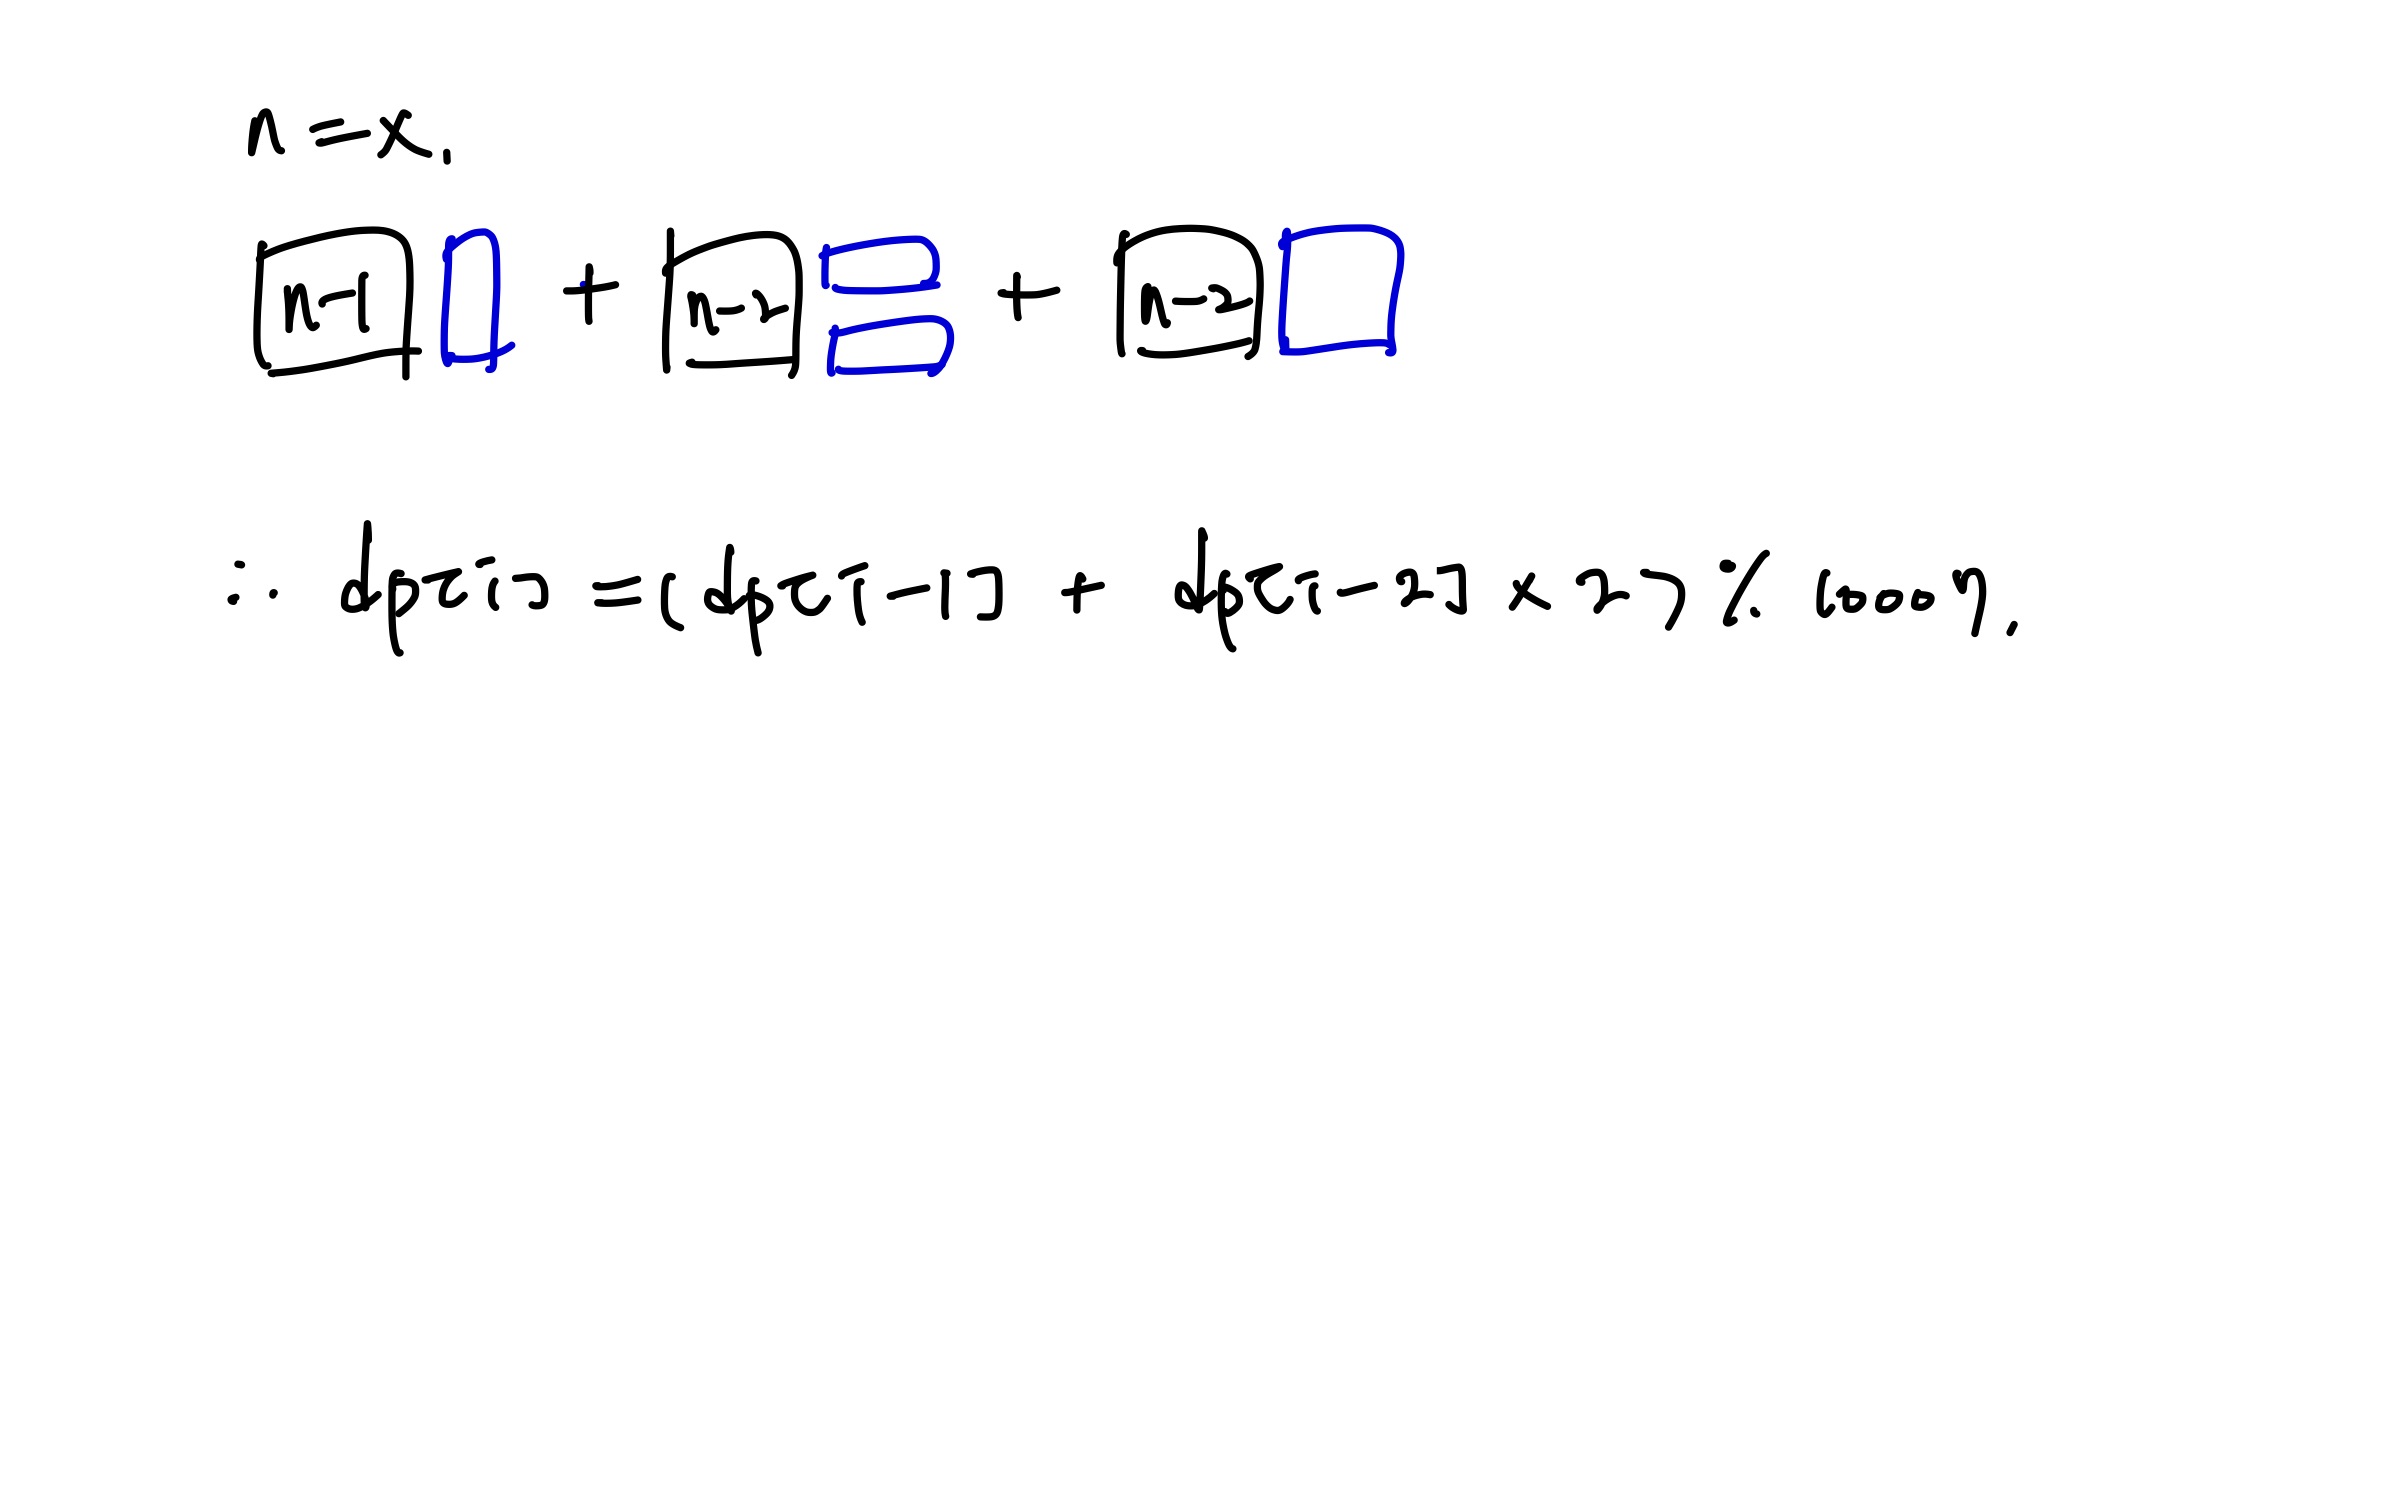 n = x.
n-1 + n-2 + n-2
∴ dp[i] = (dp[i-1] + dp[i-2] x 2) % 10007,